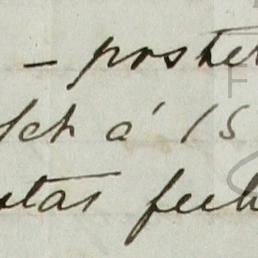 – poster
set á 15
stas fech